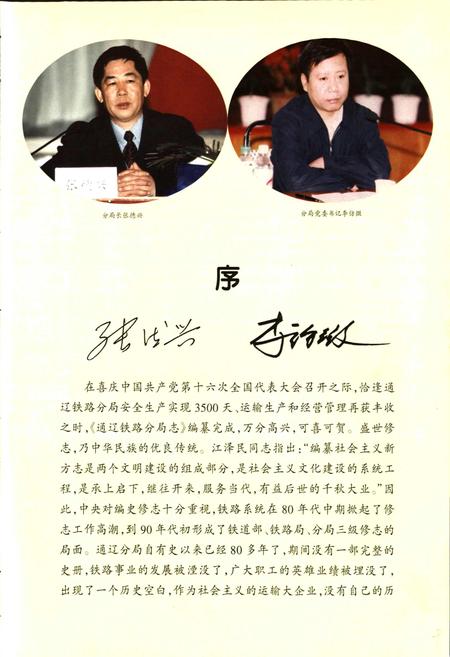 张德兴
分局长张德兴
分局党委书记李访微
序
张德兴
李访
在喜庆中国共产党第十六次全国代表大会召开之际,恰逢通
辽铁路分局安全生产实现3500天、运输生产和经营管理再获丰收
之时,《通辽铁路分局志》编纂完成,万分高兴,可喜可贺。盛世修
志,乃中华民族的优良传统。江泽民同志指出:“编纂社会主义新
方志是两个文明建设的组成部分,是社会主义文化建设的系统工
程,是承上启下,继往开来,服务当代,有益后世的千秋大业。”因
此,中央对编史修志十分重视,铁路系统在80年代中期掀起了修
志工作高潮,到90年代初形成了铁道部、铁路局、分局三级修志的
局面。通辽分局自有史以来已经80多年了,期间没有一部完整的
史册,铁路事业的发展被湮没了,广大职工的英雄业绩被埋没了,
出现了一个历史空白,作为社会主义的运输大企业,没有自己的历